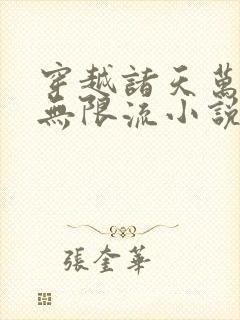 穿越諸天萬
無限流小說
張奎華